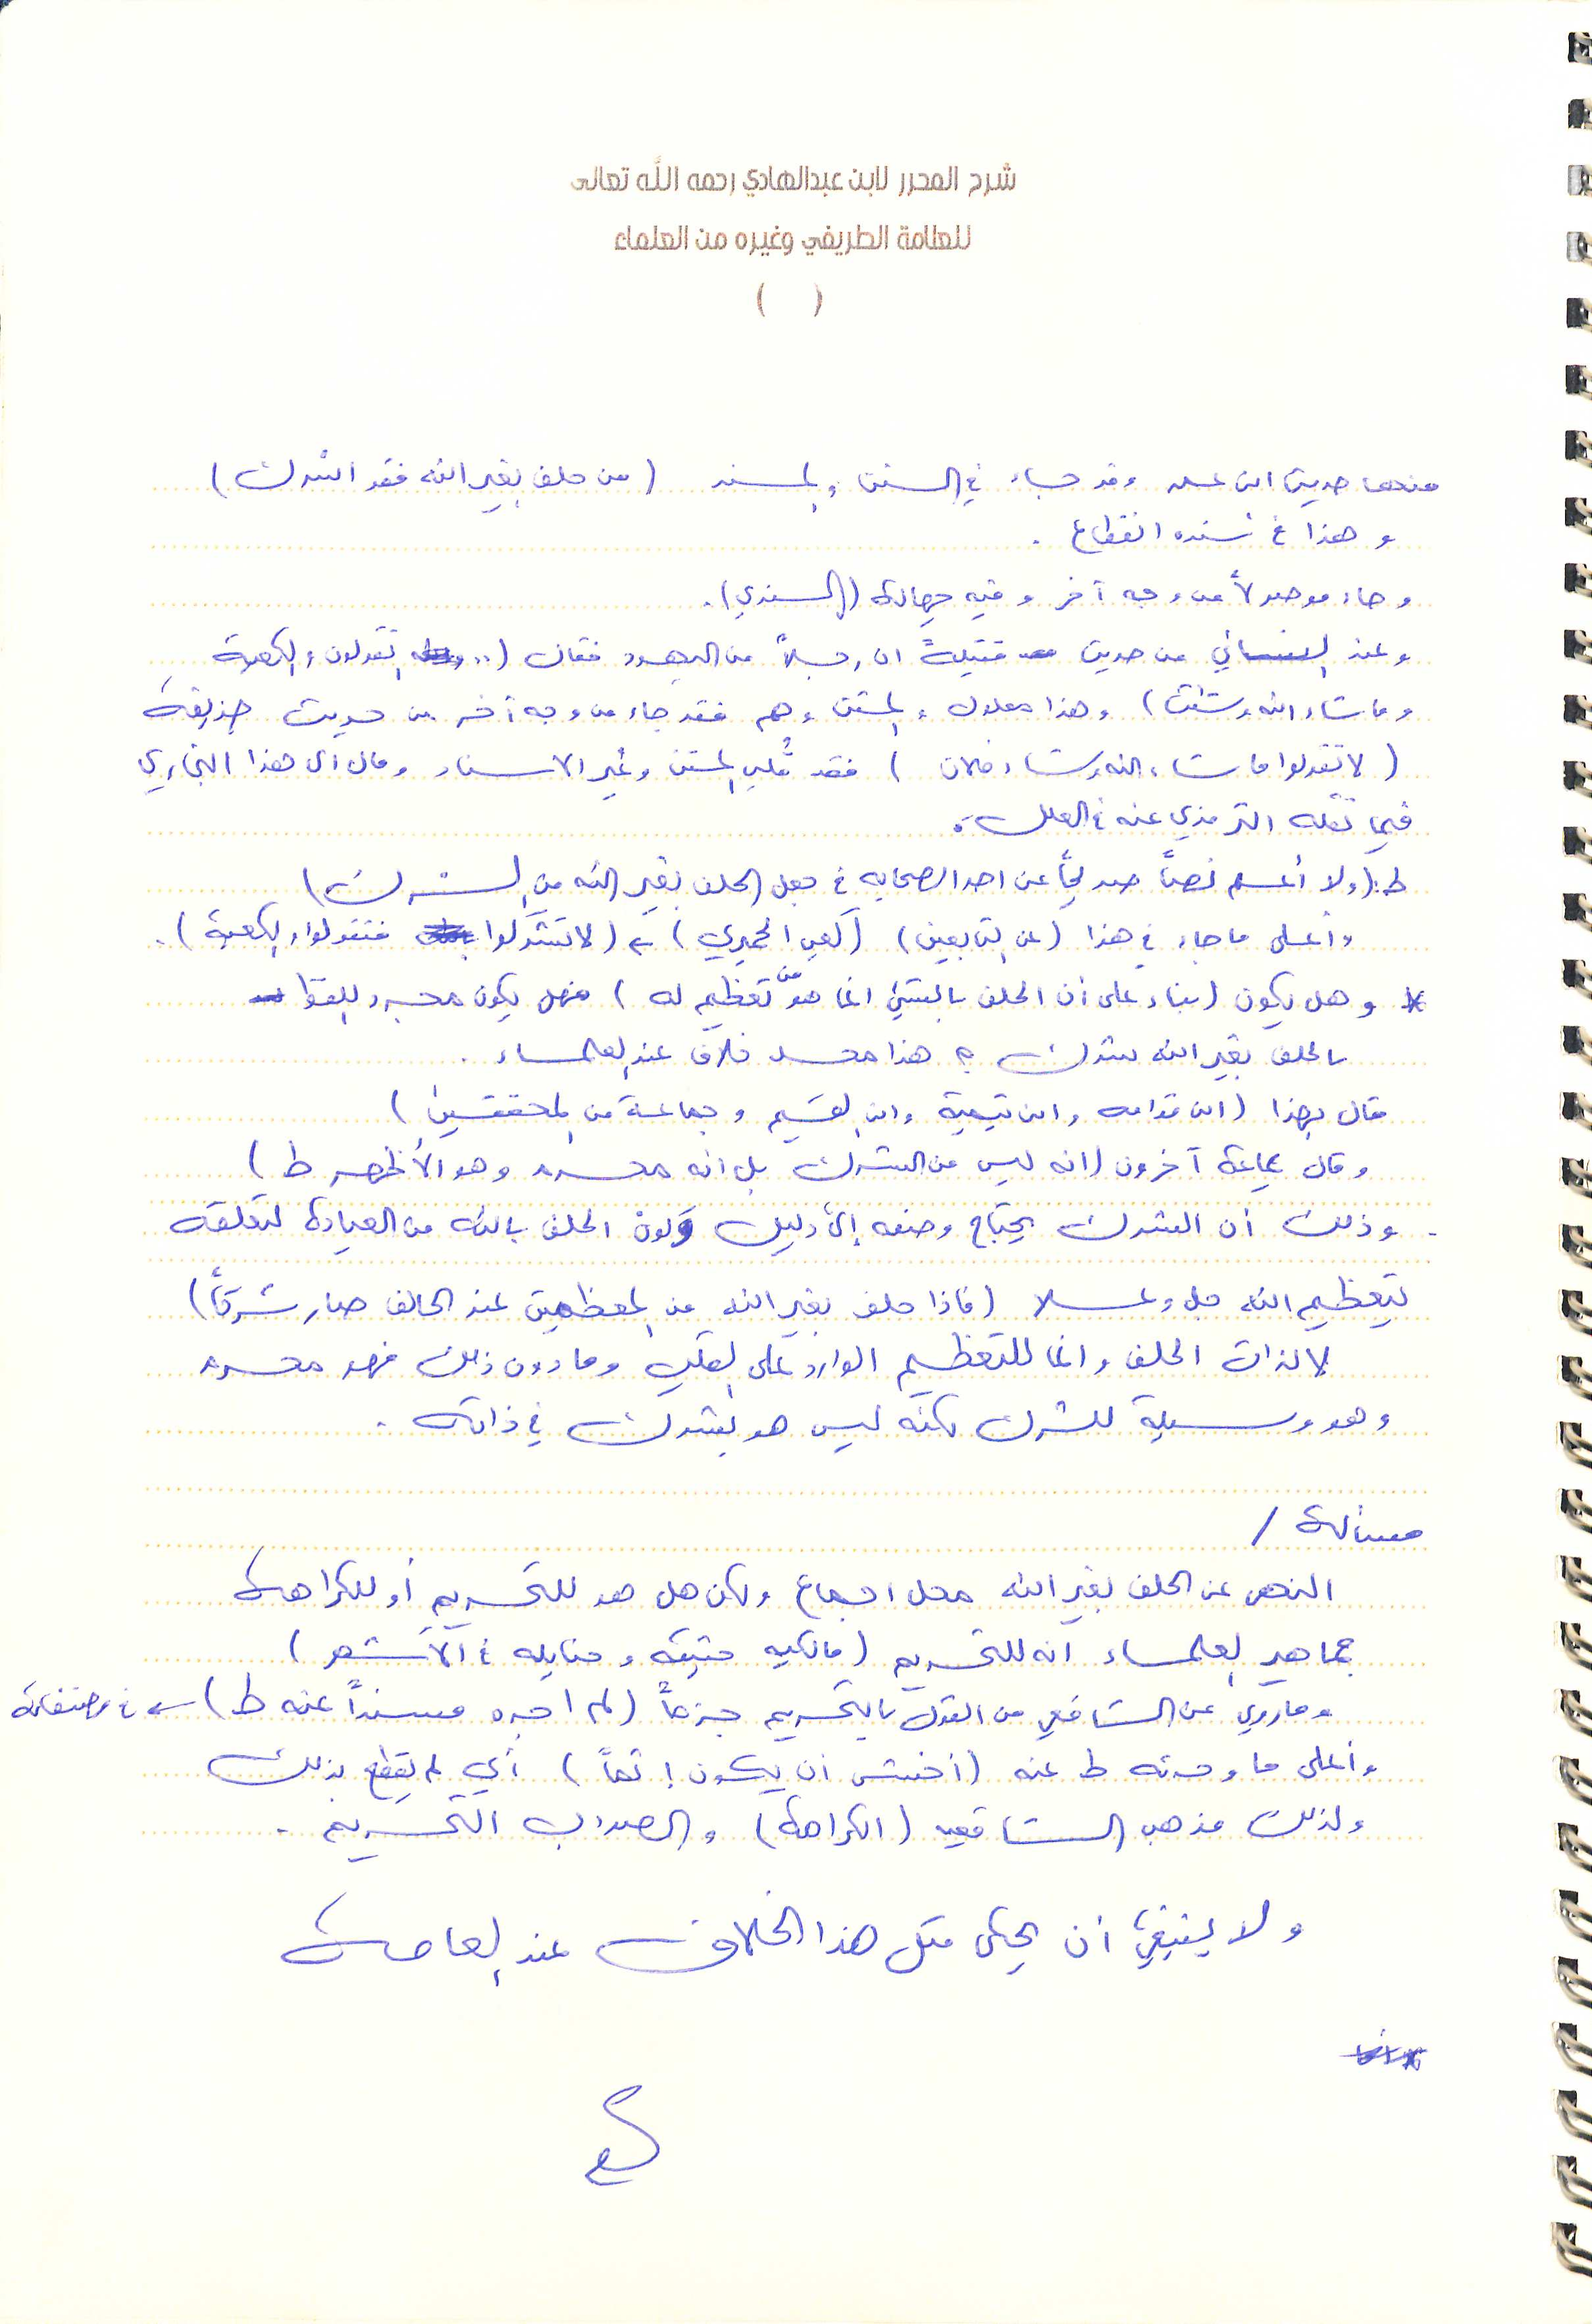 شرح المحرر لابن عبدالهادي رحمه الله تعالى
للعلامة الطريفي وغيره من العلماء
( )
منها حديث ابن عمر وقد جاء في السنن والمسند (من حلف بغير الله فقد اشرك)
وهذا في سنده انقطاع .
وجاء موصولاً من وجه آخر وفيه جهالة (الكندي).
وعند النسائي من حديث قتيلة ان رجلاً من اليهود فقال (.. تقولون والكعبة
وما شاء الله وشئت) وهذا معلول والمتن وهم فقد جاء من وجه آخر من حديث حذيفة
(لا تقولوا ما شاء الله وشاء فلان) فقد قُلب المتن وغُير الاسناد ومال الى هذا البخاري
فيما نقله الترمذي عنه في العلل.
ط: (ولا أعلم نصاً صريحاً عن احد الصحابه في جعل الحلف بغير الله من الشرك)
وأعلى ما جاء في هذا (عن التابعين) (كعب الحميري) (لا تشركوا فتقولوا والكعبة).
* وهل يكون (بناء على أن الحلف بالشيء انما هو من تعظيم له) فهل يكون مجرد اللفظ
بالحلف بغير الله شرك ؟ هذا محل خلاف عند العلماء .
قال بهذا (ابن قدامه وابن تيمية وابن القيم وجماعة من المحققين)
وقال جماعة آخرون (انه ليس من الشرك بل انه محرم وهو الأظهر ط)
. وذلك أن الشرك يحتاج وصفه إلى دليل وكون الحلف بالله من العبادة لتعلقه
بتعظيم الله جل وعلا (فاذا حلف بغير الله من المعظمين عند الحالف صار شركاً)
لا لذات الحلف وانما للتعظيم الوارد على القلب وما دون ذلك فهو محرم
وهو وسيلة للشرك لكنه ليس هو بشرك في ذاته .
مسألة /
النهي عن الحلف بغير الله محل اجماع ولكن هل هو للتحريم أو للكراهة
جماهير العلماء انه للتحريم (مالكيه حنيفة وحنابله في الأشهر)
وما روي عن الشافعي من القول بالتحريم جزماً (لم اجده مسنداً عنه ط) في مصنفاته
وأعلى ما وجدته ط عنه (أخشى أن يكون إثماً) أي لم يقطع بذلك
ولذلك مذهب الشافعيه (الكراهة) والصواب التحريم .
ولا ينبغي أن يحكى مثل هذا الخلاف عند العامة